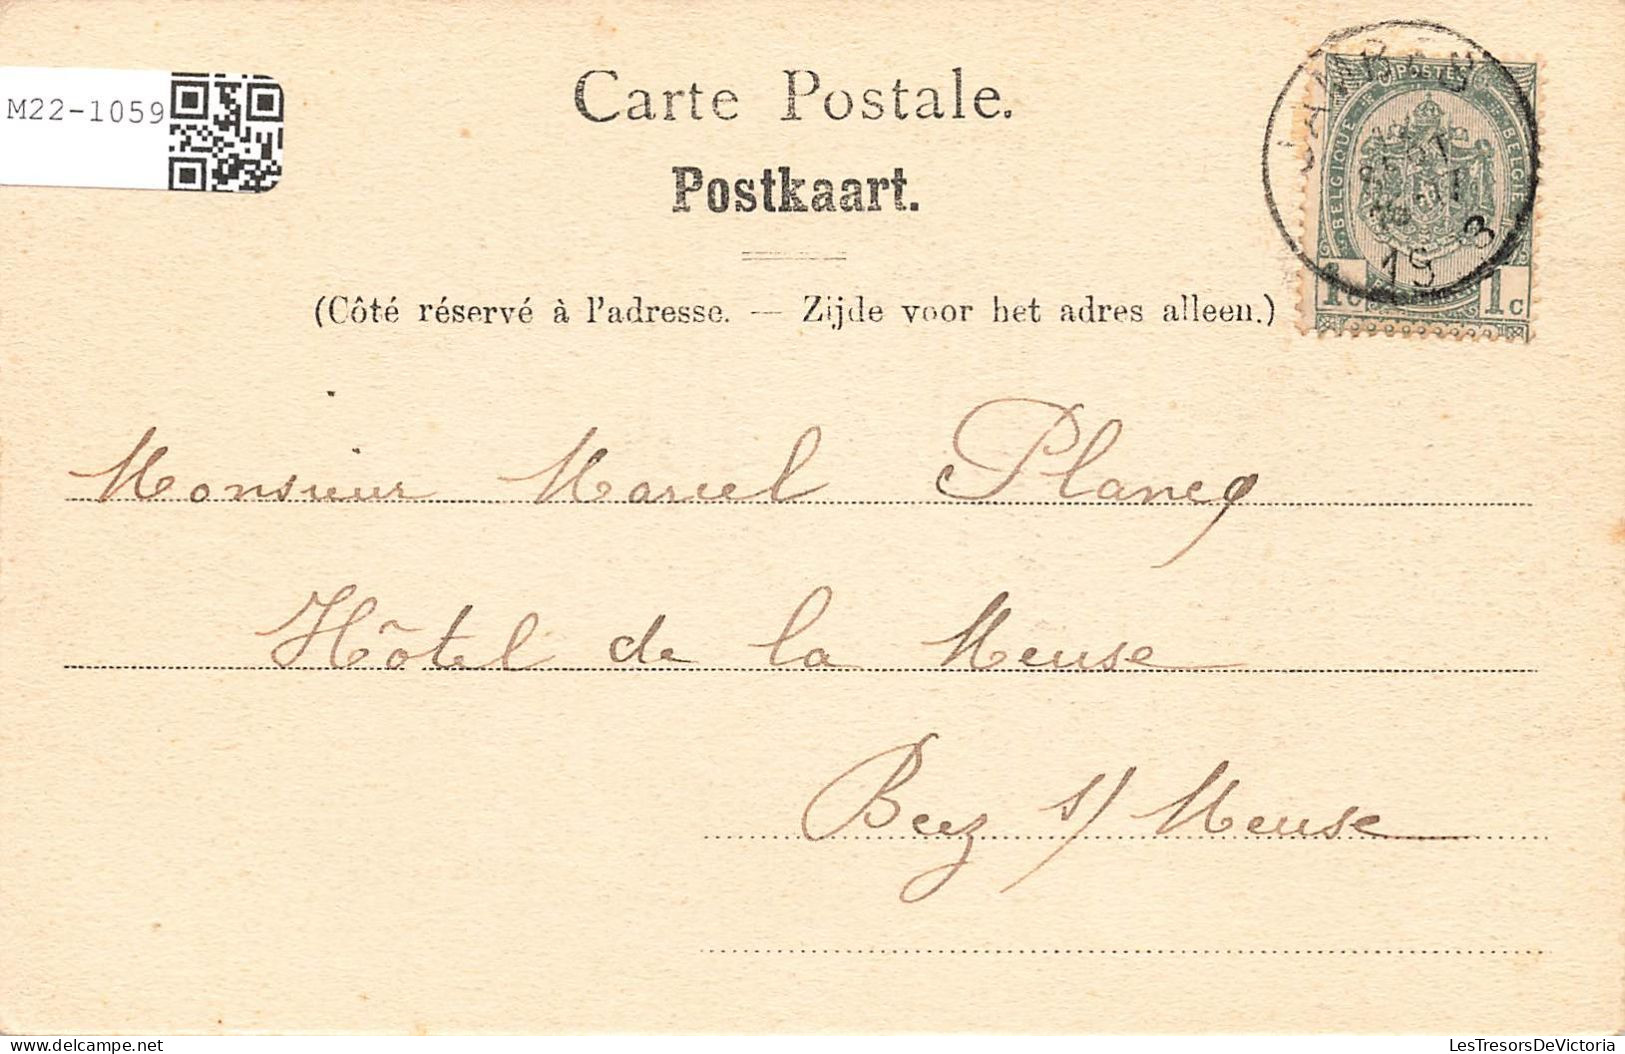 M22-1059
Carte Postale.
Postkaart.
(Côté réservé à l'adresse. — Zijde voor het adres alleen.)
POSTES
BELGIQUE BELGIË
1c 1c
Monsieur Marcel Plancq
Hôtel de la Meuse
Beez s/ Meuse
delcampe.net
LesTresorsDeVictoria